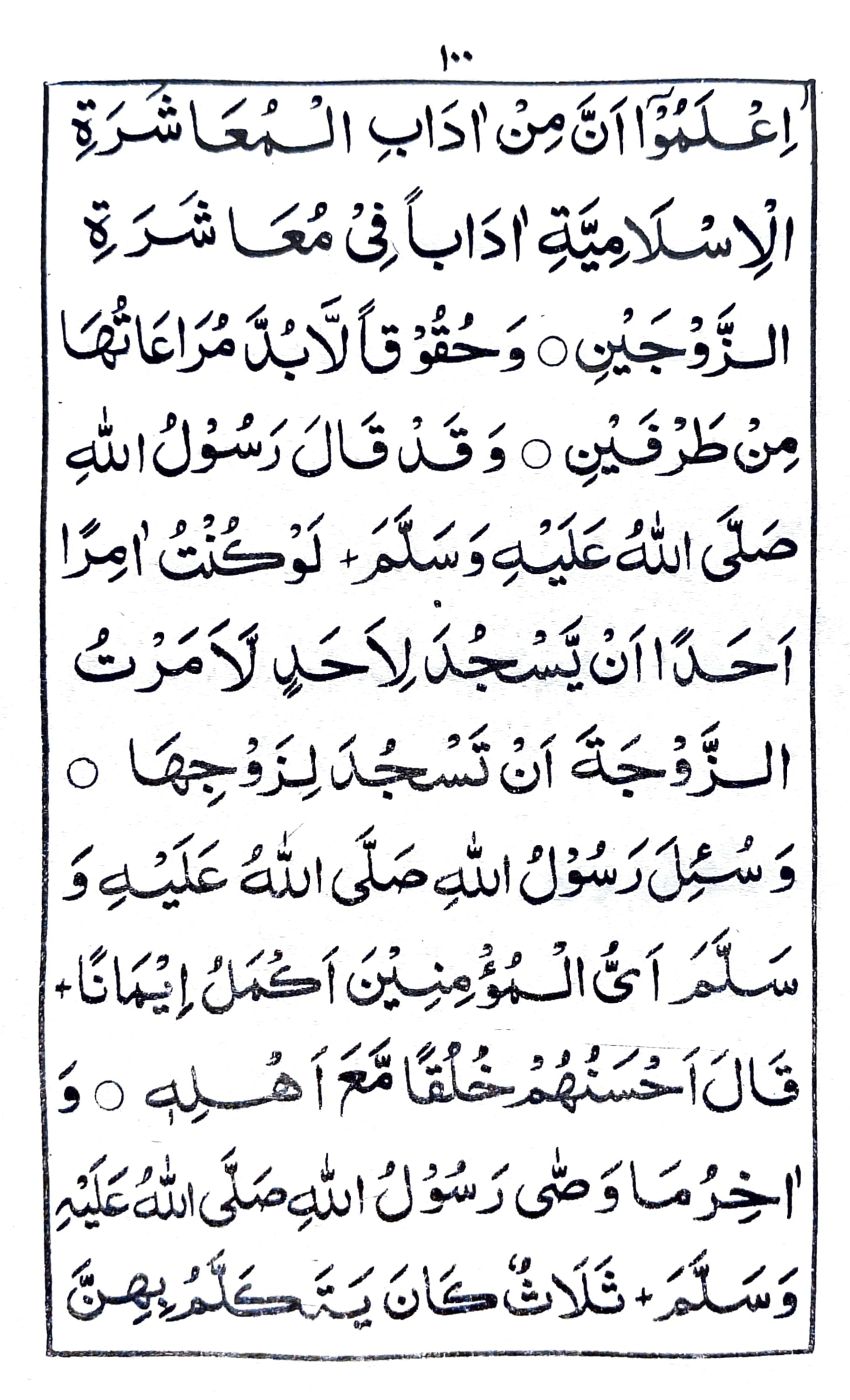 ١٠٠
اِعْلَمُوْٓا اَنَّ مِنْ اٰدَابِ الْمُعَاشَرَةِ
الْاِسْلَامِيَّةِ اٰدَاباً فِىْ مُعَاشَرَةِ
الزَّوْجَيْنِ ○ وَحُقُوْقاً لَّابُدَّ مُرَاعَاتُهَا
مِنْ طَرْفَيْنِ ○ وَقَدْ قَالَ رَسُوْلُ اللّٰهِ
صَلَّى اللّٰهُ عَلَيْهِ وَسَلَّمَ + لَوْكُنْتُ اٰمِرًا
اَحَدًا اَنْ يَّسْجُدَ لِاَحَدٍ لَّاَمَرْتُ
الزَّوْجَةَ اَنْ تَسْجُدَ لِزَوْجِهَا ○
وَسُئِلَ رَسُوْلُ اللّٰهِ صَلَّى اللّٰهُ عَلَيْهِ وَ
سَلَّمَ اَىُّ الْمُؤْمِنِيْنَ اَكْمَلُ اِيْمَانًا +
قَالَ اَحْسَنُهُمْ خُلُقًا مَّعَ اَهْلِهٖ ○ وَ
اٰخِرُ مَا وَصّٰى رَسُوْلُ اللّٰهِ صَلَّى اللّٰهُ عَلَيْهِ
وَسَلَّمَ + ثَلَاثٌ كَانَ يَتَكَلَّمُ بِهِنَّ